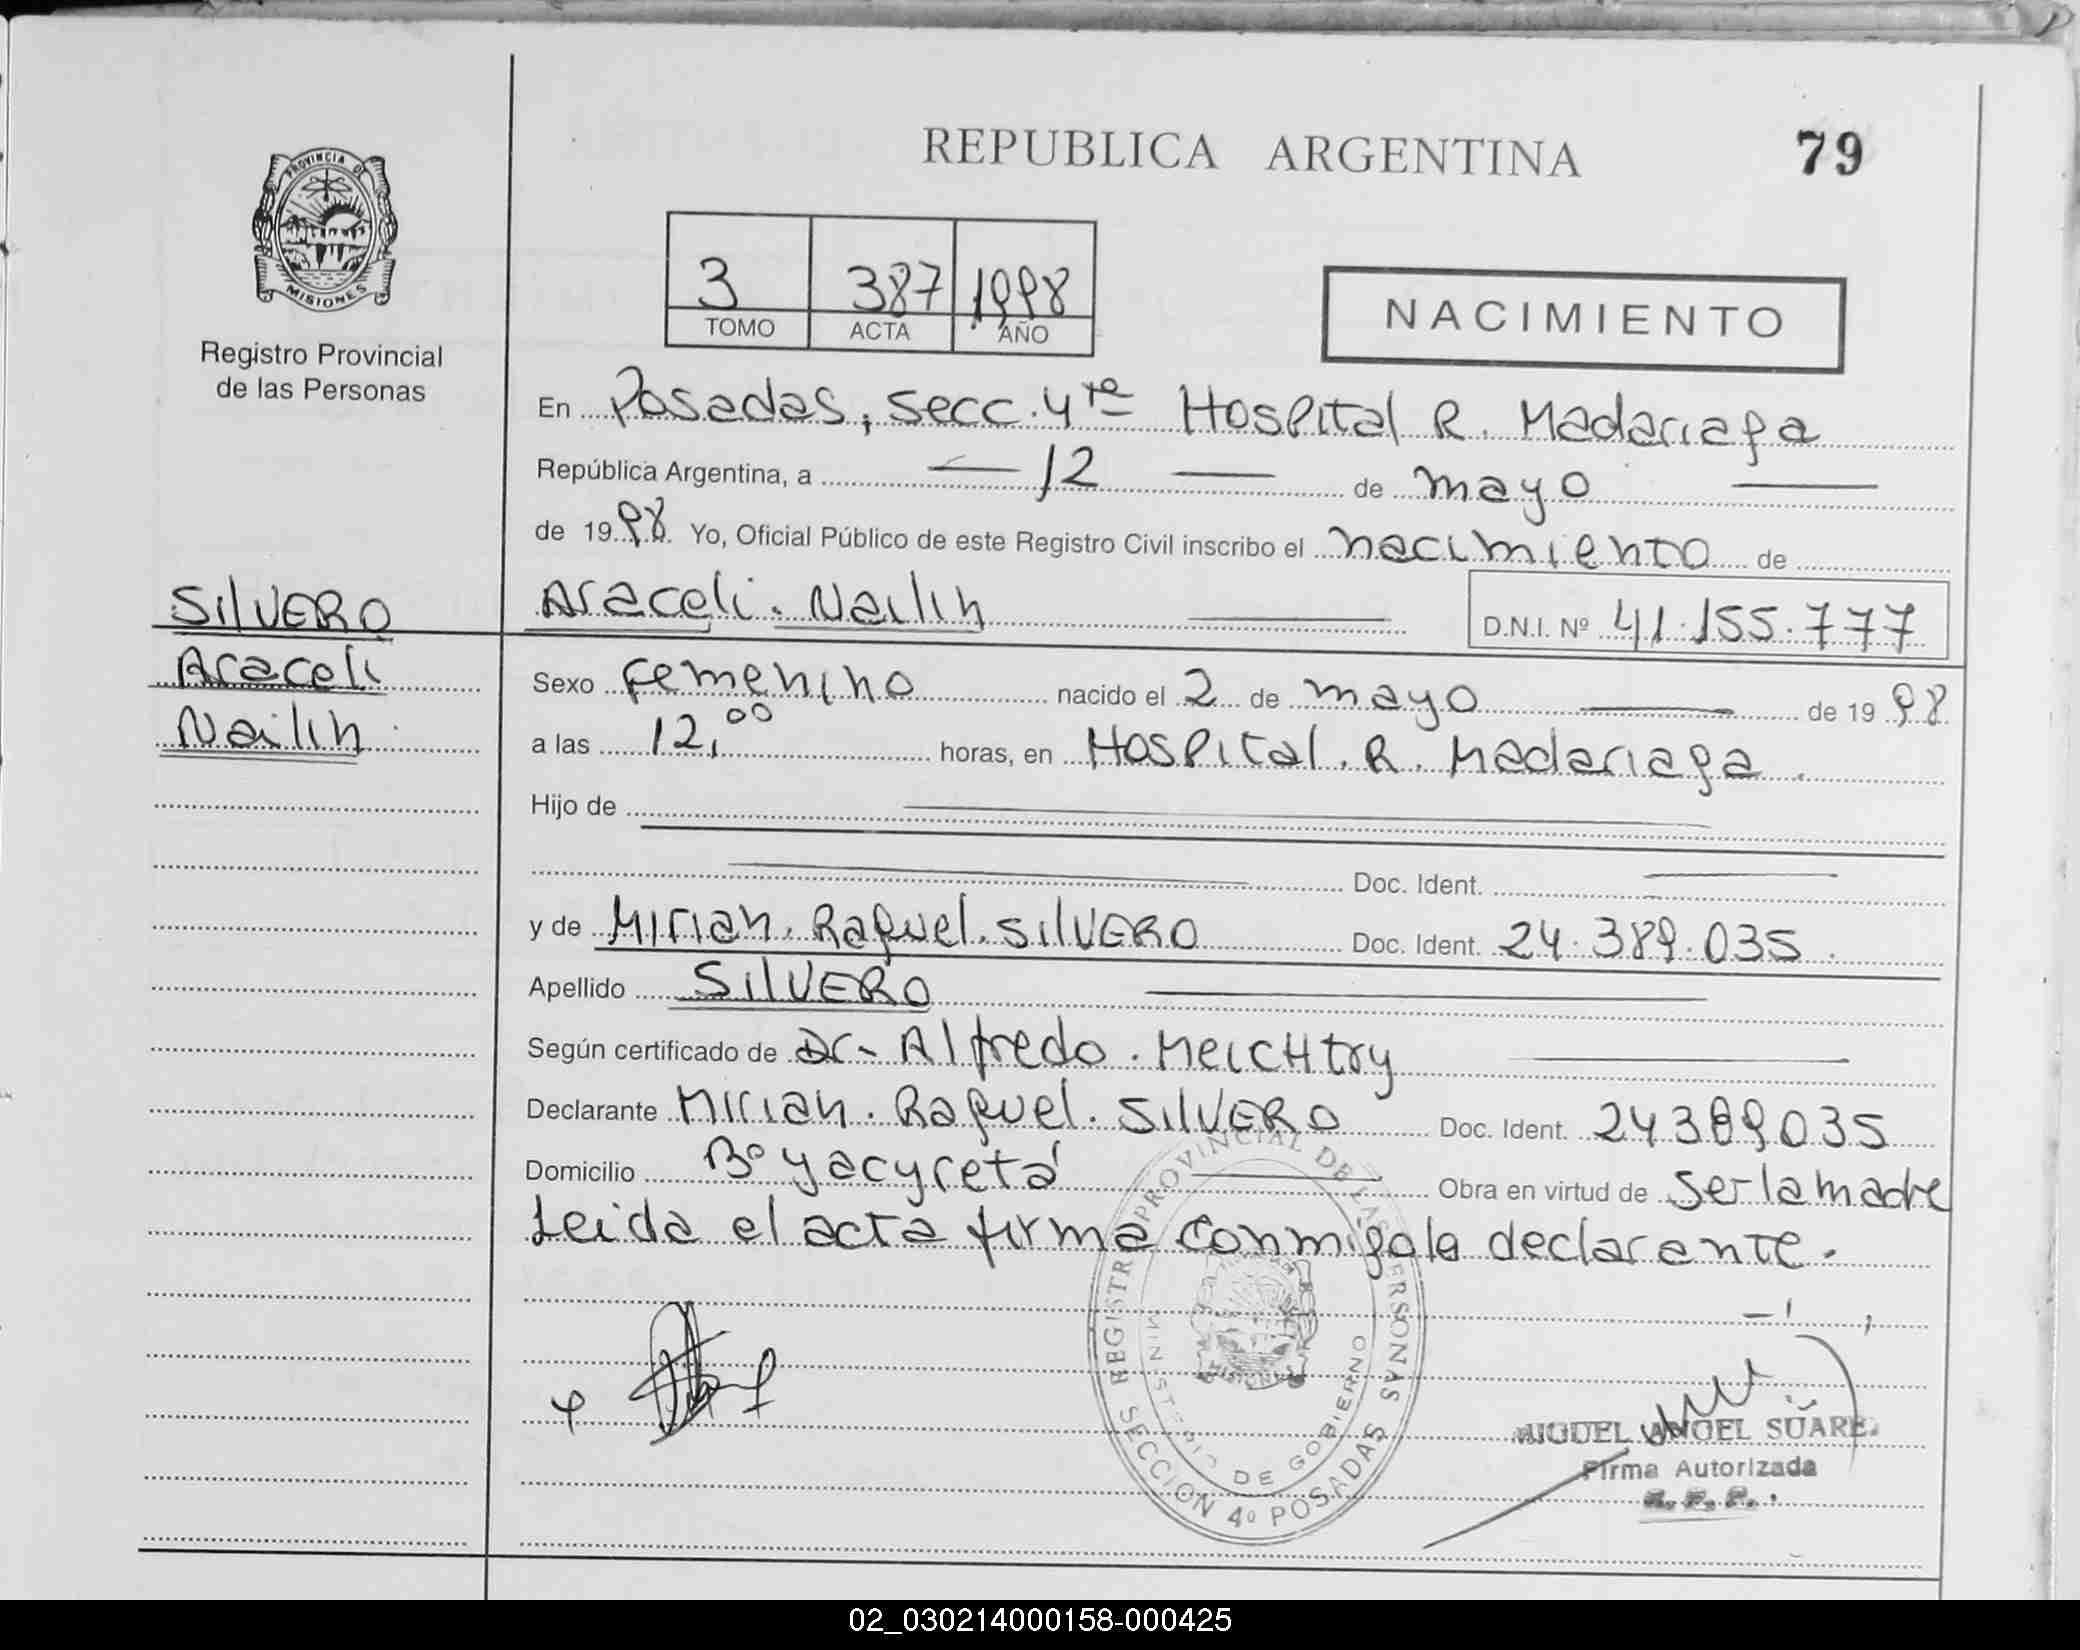 REPUBLICA ARGENTINA
79
PROVINCIA DE
MISIONES
Registro Provincial
de las Personas
3 387 1998
TOMO ACTA AÑO
NACIMIENTO
En Posadas, secc. 4ta Hospital R. Madariaga
República Argentina, a — 12 — de mayo —
de 1998 Yo, Oficial Público de este Registro Civil inscribo el nacimiento de
SILVERO
Araceli
Nailin
Araceli. Nailin — D.N.I. Nº 41.155.777
Sexo Femenino nacido el 2 de mayo — de 1998
a las 12,00 horas, en Hospital. R. Madariaga.
Hijo de
Doc. Ident.
y de Mirian. Raquel. SILVERO Doc. Ident. 24.389.035.
Apellido SILVERO
Según certificado de Dr- Alfredo. MeicHtry
Declarante Mirian. Raquel. SILVERO Doc. Ident. 24389035
Domicilio Bº yacyretá — Obra en virtud de ser la madre
Leida el acta firma conmigo la declarante.
REGISTRO PROVINCIAL DE LAS PERSONAS
MINISTERIO DE GOBIERNO
SECCION 4º POSADAS
MISIONES
MIGUEL ANGEL SUAREZ
Firma Autorizada
R. P. P.
02_030214000158-000425